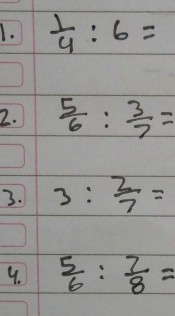 1. 1/4 : 6 =
2. 5/6 : 3/7 =
3. 3 : 2/7 =
4. 5/6 : 7/8 =